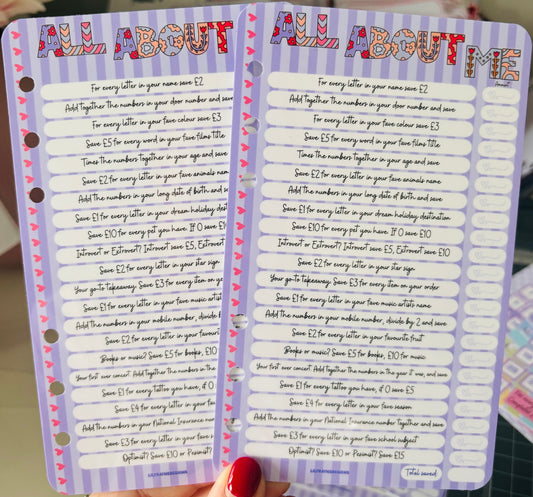 ALL ABOUT
For every letter in your name save £2
Add together the numbers in your door number and save
For every letter in your fave colour save £3
Save £5 for every word in your fave films title
Times the numbers together in your age and save
Save £2 for every letter in your fave animals name
Add the numbers in your long date of birth and sav
Save £1 for every letter in your dream holiday des
Save £10 for every pet you have. If 0 save £1
Introvert or Extrovert? Introvert save £5, Extrovert
Save £2 for every letter in your star sign
Your go-to takeaway. Save £3 for every item on your
Save £1 for every letter in your fave music artists
Add the numbers in your mobile number, divide b
Save £2 for every letter in your favourit
Books or music? Save £5 for books, £10
Your first ever concert. Add together the numbers in th
Save £1 for every tattoo you have, if 0
Save £4 for every letter in your fave
Add the numbers in your National Insurance numb
Save £3 for every letter in your fave s
Optimist? Save £10 or Pessimist? Sa
LILTEATREDESIGNS
ALL ABOUT ME
Amount
For every letter in your name save £2
Add together the numbers in your door number and save
For every letter in your fave colour save £3
Save £5 for every word in your fave films title
Times the numbers together in your age and save
Save £2 for every letter in your fave animals name
Add the numbers in your long date of birth and save
Save £1 for every letter in your dream holiday destination
Save £10 for every pet you have. If 0 save £10
Introvert or Extrovert? Introvert save £5, Extrovert save £10
Save £2 for every letter in your star sign
Your go-to takeaway. Save £3 for every item on your order
Save £1 for every letter in your fave music artists name
Add the numbers in your mobile number, divide by 2 and save
Save £2 for every letter in your favourite fruit
Books or music? Save £5 for books, £10 for music
Your first ever concert. Add together the numbers in the year it was, and save
Save £1 for every tattoo you have, if 0 save £5
Save £4 for every letter in your fave season
Add the numbers in your National Insurance number together and save
Save £3 for every letter in your fave school subject
Optimist? Save £10 or Pessimist? Save £15
Total saved